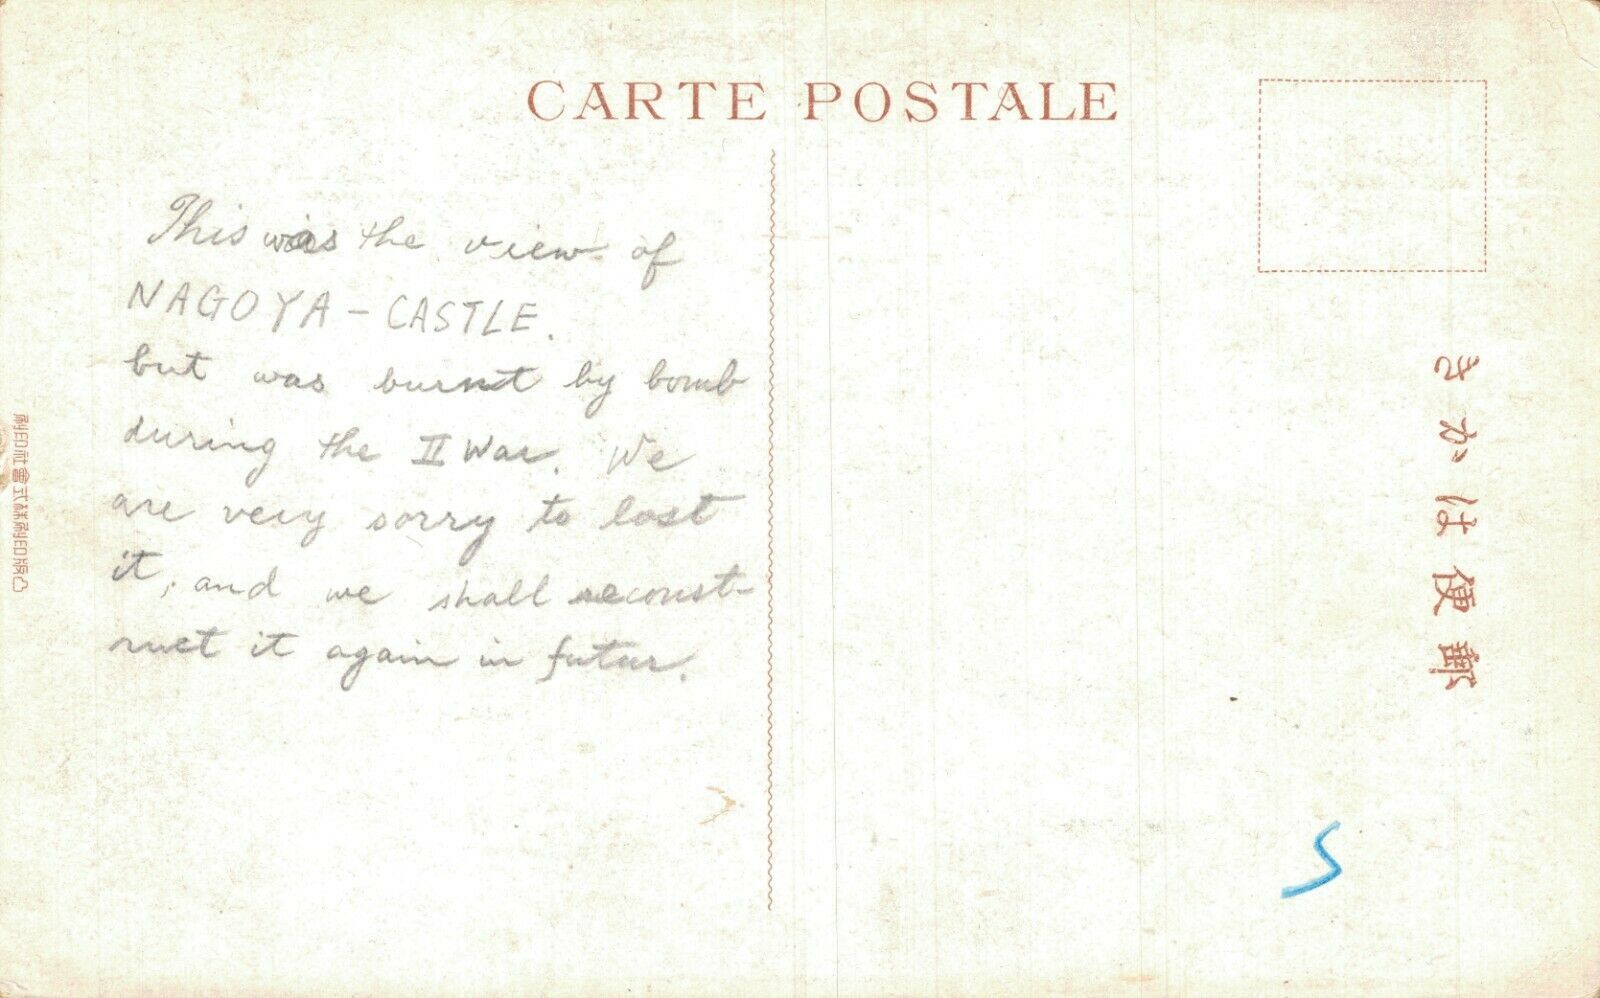 CARTE POSTALE
This was the view of
NAGOYA - CASTLE.
but was burnt by bomb
during the II War. We
are very sorry to lost
it, and we shall reconst-
ruct it again in futur.
きかは便郵
刷印社會式株刷印版凸
S